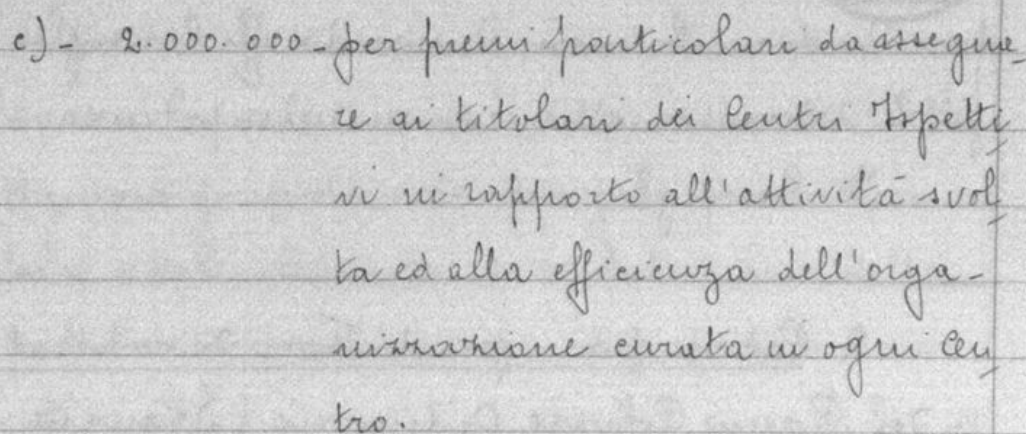 c)- 2.000.000- per premi particolari da assegna-
re ai titolari dei Centri Ispetti-
vi in rapporto all'attività svol-
ta ed alla efficienza dell'orga-
nizzazione curata in ogni Cen-
tro.